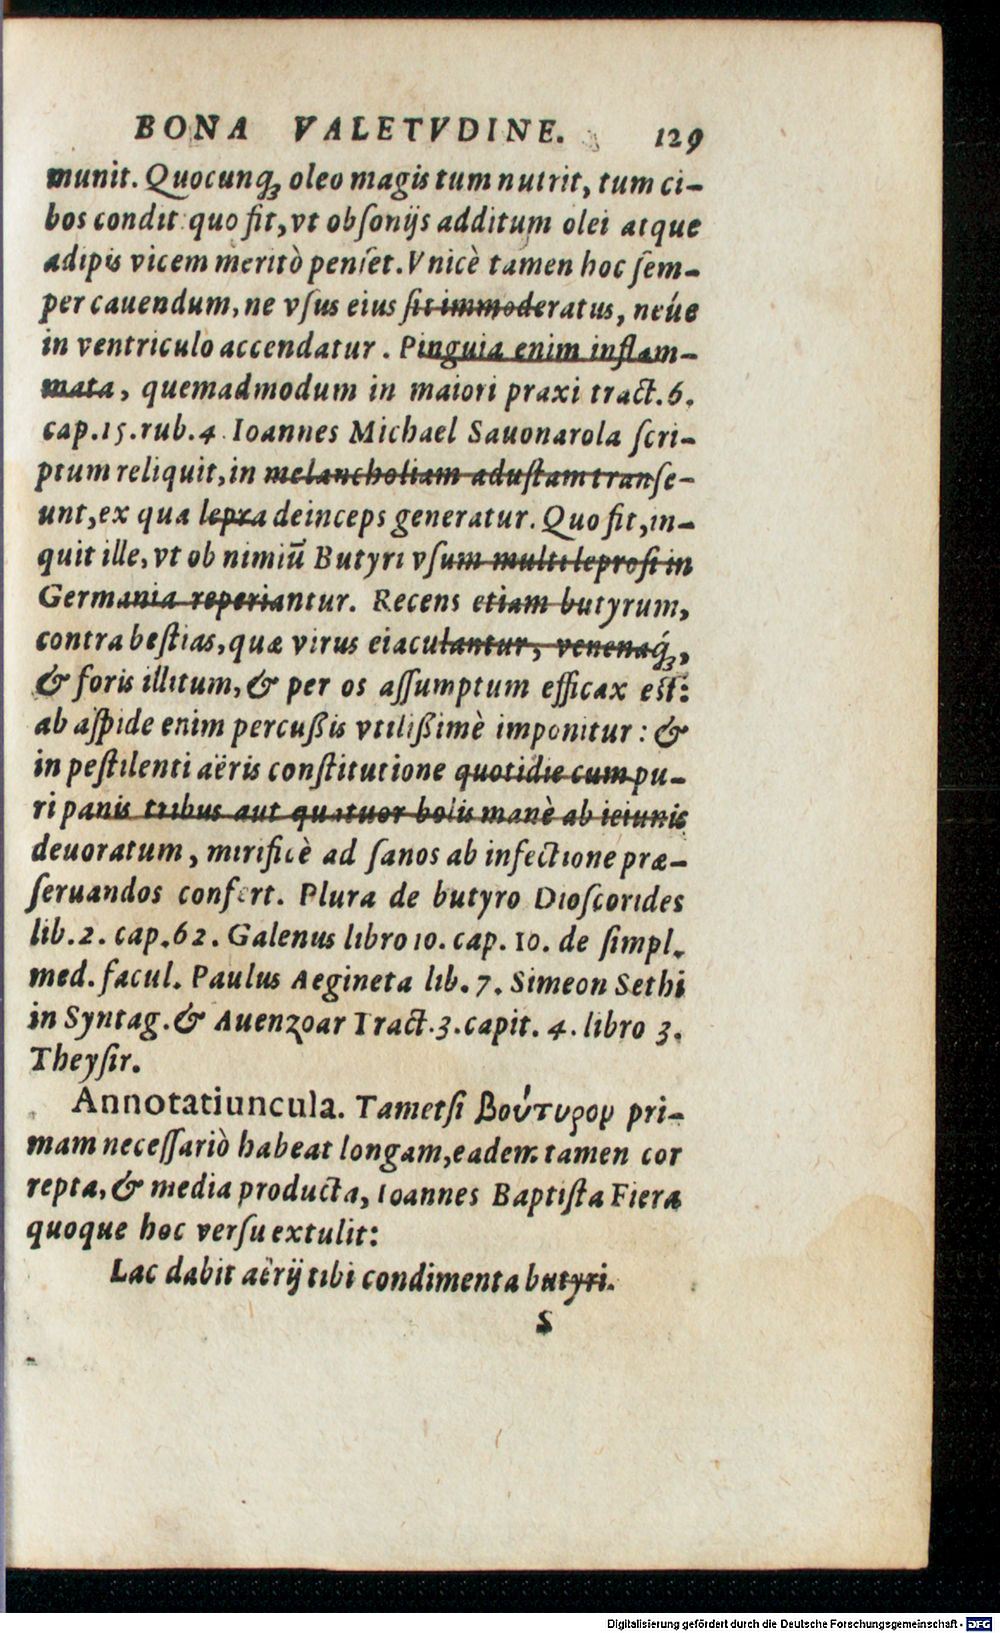 BONA VALETVDINE. 129
munit. Quocunq́ꝫ oleo magis tum nutrit, tum ci-
bos condit: quo fit, vt obſonijs additum olei atque
adipis vicem meritò penſet. Vnicè tamen hoc ſem-
per cauendum, ne vſus eius ſit immoderatus, néue
in ventriculo accendatur. Pinguia enim inflam-
mata, quemadmodum in maiori praxi tract. 6.
cap. 15. rub. 4 Ioannes Michael Sauonarola ſcri-
ptum reliquit, in melancholiam aduſtam tranſe-
unt, ex qua lepra deinceps generatur. Quo fit, in-
quit ille, vt ob nimiũ Butyri vſum multi leproſi in
Germania reperiantur. Recens etiam butyrum,
contra beſtias, quæ virus eiaculantur, venenaq́ꝫ,
& foris illitum, & per os aſſumptum efficax eſt:
ab aſpide enim percuſsis vtiliſsimè imponitur: &
in peſtilenti aëris conſtitutione quotidie cum pu-
ri panis tribus aut quatuor bolis manè ab ieiunis
deuoratum, mirificè ad ſanos ab infectione præ-
ſeruandos confert. Plura de butyro Dioſcorides
lib. 2. cap. 62. Galenus libro 10. cap. 10. de ſimpl.
med. facul. Paulus Aegineta lib. 7. Simeon Sethi
in Syntag. & Auenzoar Tract. 3. capit. 4. libro 3.
Theyſir.
Annotatiuncula. Tametſi βούτυρον pri-
mam neceſſariò habeat longam, eadem tamen cor
repta, & media producta, Ioannes Baptiſta Fiera
quoque hoc verſu extulit:
Lac dabit aërij tibi condimenta butyri.
S
Digitalisierung gefördert durch die Deutsche Forschungsgemeinschaft - DFG